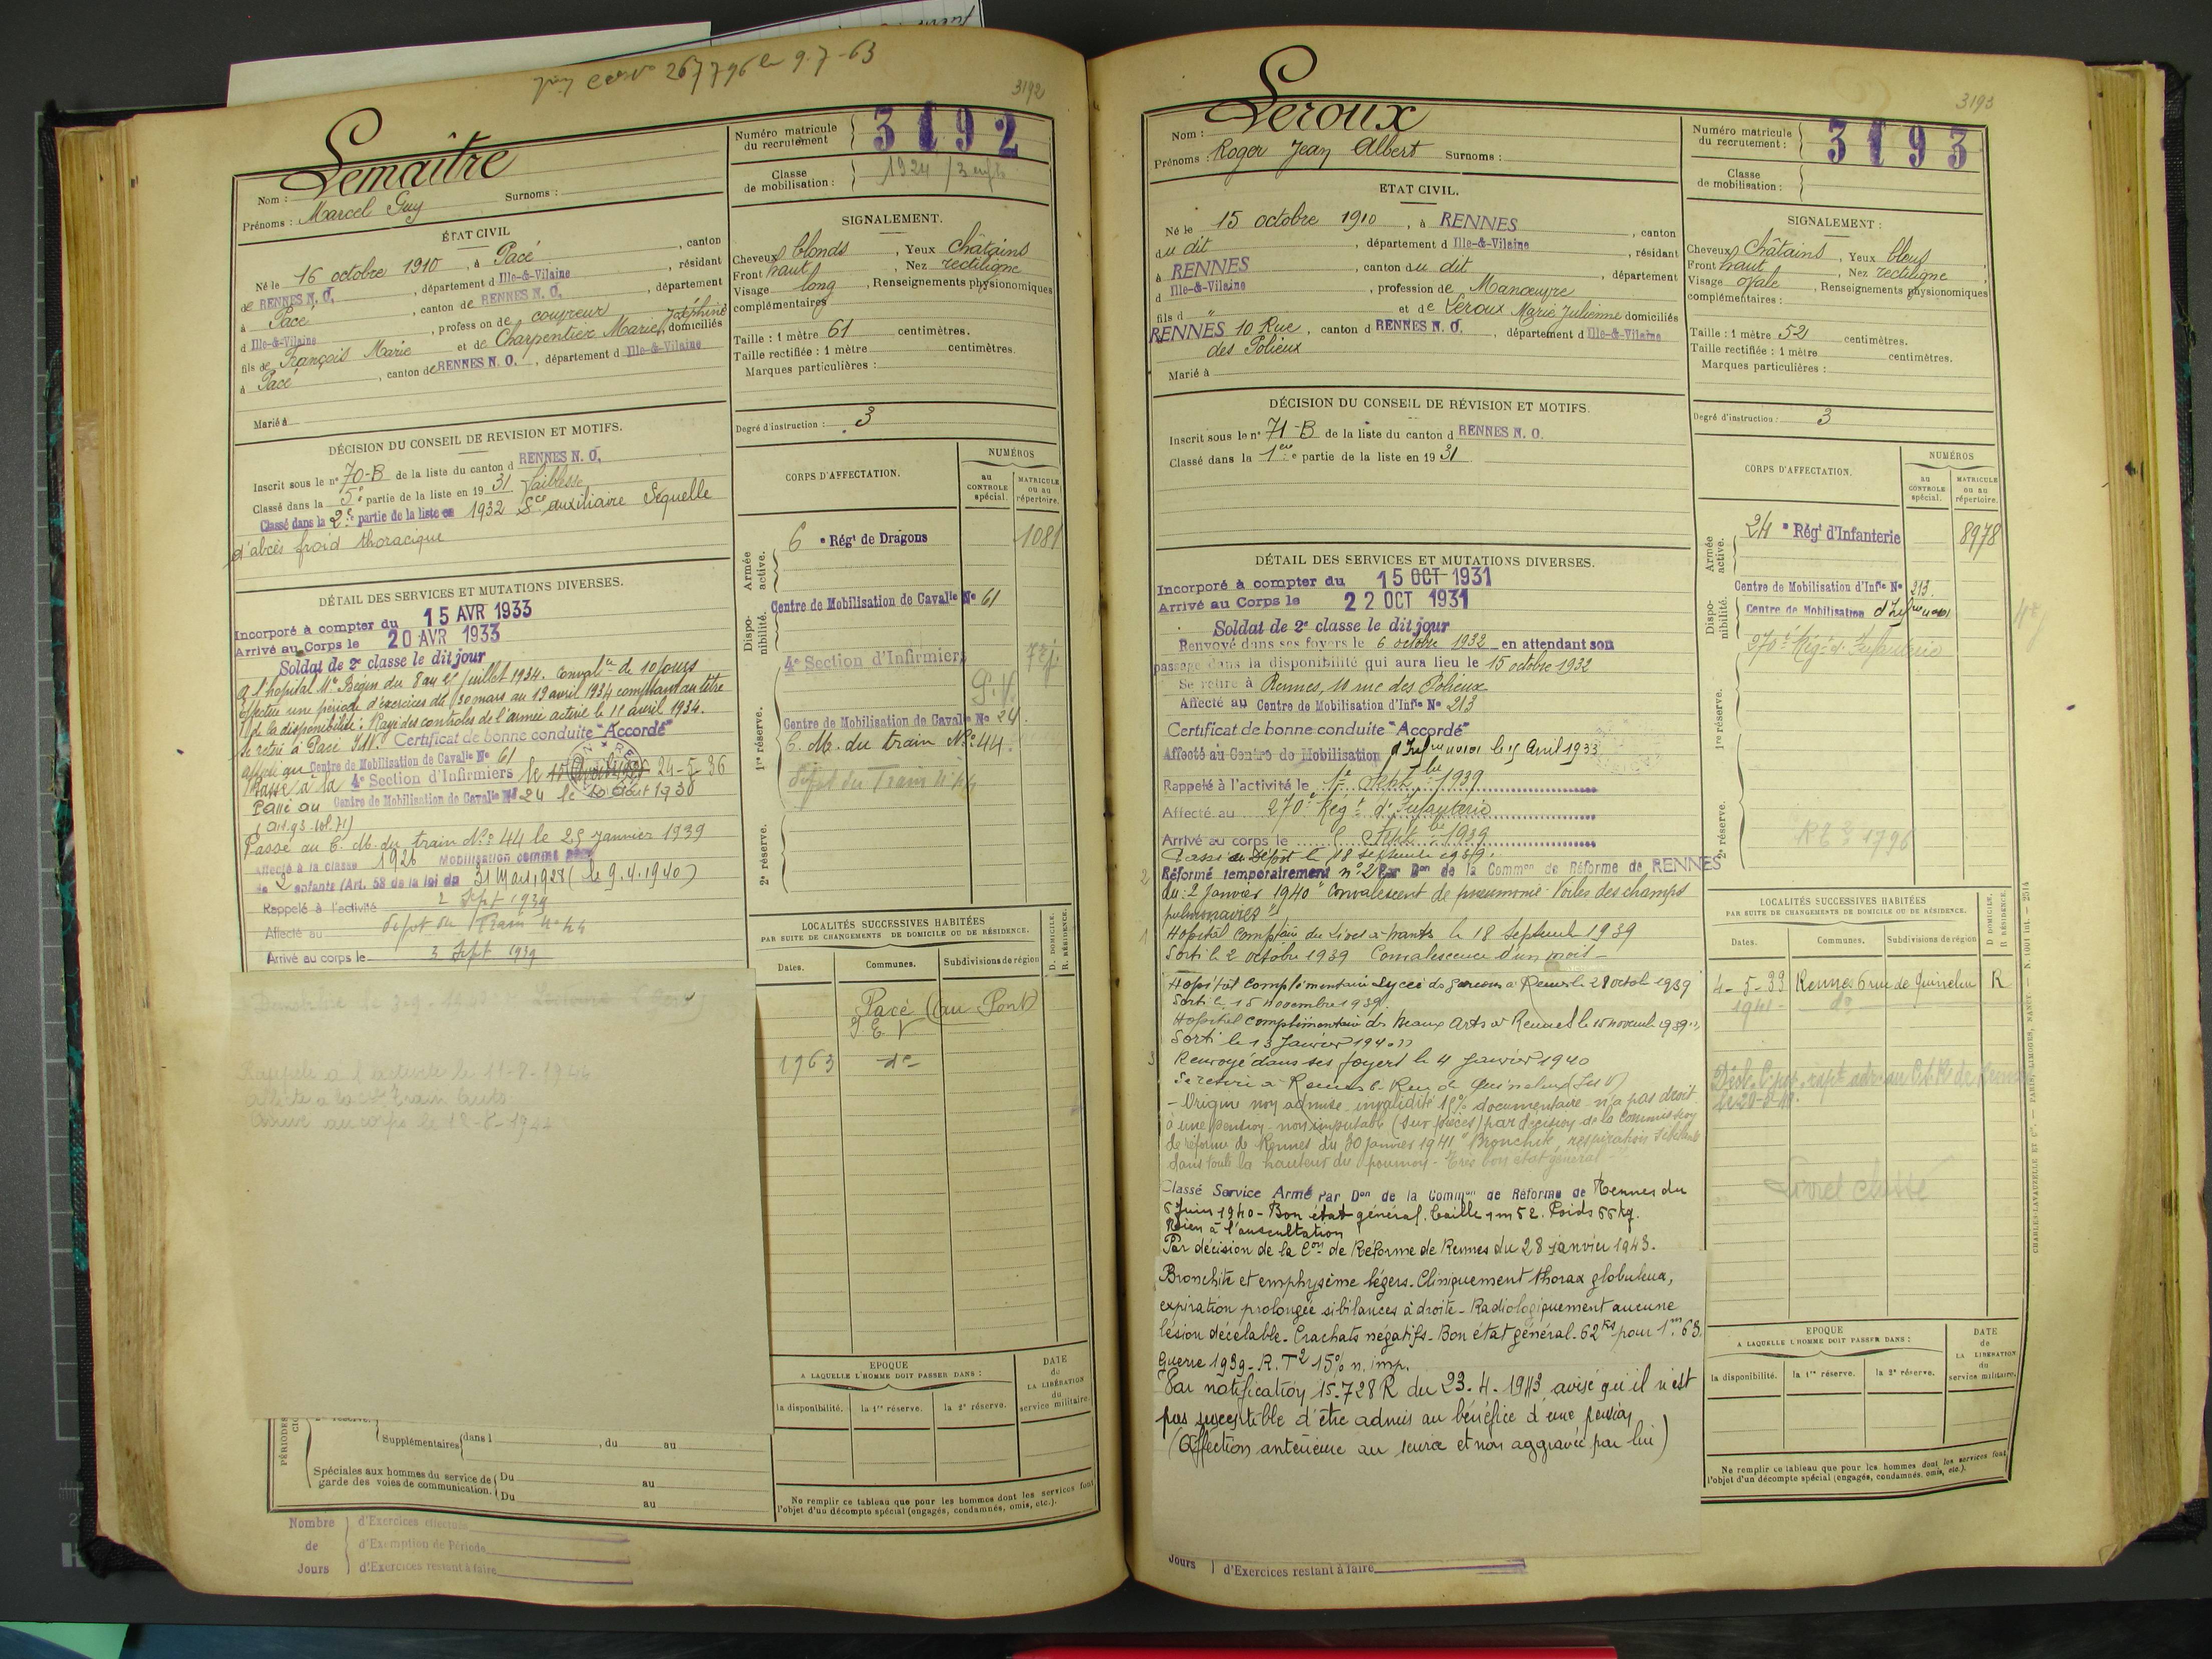 3192
Lemaître
Nom :
Prénoms : Marcel Guy Surnoms :
ÉTAT CIVIL
Né le 16 octobre 1910, à Pacé, canton
de RENNES N. O., département d Ille-&-Vilaine, résidant
à Pacé, canton de RENNES N. O., département
d Ille-&-Vilaine, profession de couvreur
fils de François Marie et de Charpentier Marie Joséphine, domiciliés
à Pacé, canton de RENNES N. O., département d Ille-&-Vilaine
Marié à
DÉCISION DU CONSEIL DE REVISION ET MOTIFS.
Inscrit sous le n° 70-B de la liste du canton d RENNES N. O.
Classé dans la 5e partie de la liste en 1931 Faiblesse
Classé dans la 2e partie de la liste en 1932 Sce auxiliaire Séquelle
d'abcès froid thoracique
DÉTAIL DES SERVICES ET MUTATIONS DIVERSES.
Incorporé à compter du 15 AVR 1933
Arrivé au Corps le 20 AVR 1933
Soldat de 2e classe le dit jour
A l'hôpital Mre Bégin du 8 au juillet 1934. Convalce de 10 jours
Effectue une période d'exercices du 30 mars au 19 avril 1934 comptant au titre
de la disponibilité. Rayé des contrôles de l'armée active le 11 avril 1934.
Se retire à Pacé I&V. Certificat de bonne conduite "Accordé"
Affecté au Centre de Mobilisation de Cavalie No 61
Passé à la 4e Section d'Infirmiers le 24-5-36
Passé au Centre de Mobilisation de Cavalie No 24 le 10 Août 1938
(art. 93 vol. 71)
Passé au C. M. du train No 44 le 25 janvier 1939
Affecté à la classe 1926 Mobilisation comme père
de 2 enfants (Art. 58 de la loi du 31 Mars 1928 (le 9.4.1940)
Rappelé à l'activité 2 Sept 1939
Affecté au dépôt du Train n° 44
Arrivé au corps le 3 Sept 1939
Rappelé à l'activité le 11-8-1944
Arrivé au corps le 12-8-1944
PÉRIODES
Supplémentaires dans l , du au
Spéciales aux hommes du service de garde des voies de communication. Du au
Du au
Nombre de Jours
d'Exercices effectués
d'Exemption de Période
d'Exercices restant à faire
Numéro matricule du recrutement
3192
Classe de mobilisation :
1924 / 3 enfts
SIGNALEMENT.
Cheveux blonds, Yeux châtains
Front haut, Nez rectiligne
Visage long, Renseignements physionomiques
complémentaires
Taille : 1 mètre 61 centimètres.
Taille rectifiée : 1 mètre centimètres.
Marques particulières :
Degré d'instruction : 3
CORPS D'AFFECTATION.
NUMÉROS
au CONTROLE spécial.
MATRICULE ou au répertoire.
Armée active.
6e Régt de Dragons 1081
Disponibilité.
Centre de Mobilisation de Cavalie No 61
1re réserve.
4e Section d'Infirmiers
Centre de Mobilisation de Cavale No 24.
C. M. du train No 44.
Dépôt du Train n° 44
2e réserve.
LOCALITÉS SUCCESSIVES HABITÉES
PAR SUITE DE CHANGEMENTS DE DOMICILE OU DE RÉSIDENCE.
Dates. Communes. Subdivisions de région
D. DOMICILE. R. RÉSIDENCE.
Pacé (au Pont)
I & V
1963 do
EPOQUE
A LAQUELLE L'HOMME DOIT PASSER DANS :
la disponibilité. la 1re réserve. la 2e réserve.
DATE de LA LIBÉRATION du service militaire.
Ne remplir ce tableau que pour les hommes dont les services font
l'objet d'un décompte spécial (engagés, condamnés, omis, etc.).
3193
Leroux
Nom :
Prénoms : Roger Jean Albert Surnoms :
ETAT CIVIL.
Né le 15 octobre 1910, à RENNES, canton
du dit, département d Ille-&-Vilaine, résidant
à RENNES, canton du dit, département
d Ille-&-Vilaine, profession de Manœuvre
fils d " et de Leroux Marie Julienne domiciliés
RENNES 10 Rue, canton d RENNES N. O., département d Ille-&-Vilaine
des Polieux
Marié à
DÉCISION DU CONSEIL DE RÉVISION ET MOTIFS.
Inscrit sous le n° 71-B de la liste du canton d RENNES N. O.
Classé dans la 1ere partie de la liste en 1931
DÉTAIL DES SERVICES ET MUTATIONS DIVERSES.
Incorporé à compter du 15 OCT 1931
Arrivé au Corps le 22 OCT 1931
Soldat de 2e classe le dit jour
Renvoyé dans ses foyers le 6 octobre 1932 en attendant son
passage dans la disponibilité qui aura lieu le 15 octobre 1932
Se retire à Rennes, 10 rue des Polieux
Affecté au Centre de Mobilisation d'Infie No 213
Certificat de bonne conduite "Accordé"
Affecté au Centre de Mobilisation d'Infrie le 15 Avril 1933
Rappelé à l'activité le 1er Septbre 1939
Affecté au 270e Régt d'Infanterie
Arrivé au corps le Septbre 1939
Passé au Dépôt le 18 septembre 1939.
2 Réformé temporairement n° 2 Par Don de la Common de Réforme de RENNES
du : 2 Janvier 1940 "Convalescent de pneumonie. Voiles des champs
pulmonaires"
1 Hôpital Complre du Lycée à Nantes le 18 Septemb 1939
Sorti le 2 octobre 1939 Convalescence d'un mois -
Hôpital complémentaire Lycée de garçons à Rennes le 28 octob 1939
Sorti le 15 novembre 1939.
Hôpital complémentaire des Beaux Arts à Rennes le 15 novemb 1939
Sorti le 13 Janvier 1940
3 Renvoyé dans ses foyers le 4 Janvier 1940
Se retire à Rennes 6 Rue de Quineleu (I & V)
- Origine non admise - invalidité 15% documentaire - n'a pas droit
à une pension - non imputable (sur pièces) par décision de la Commission
de réforme de Rennes du 30 janvier 1941 "Bronchite, respiration sibilante
dans toute la hauteur du poumon - Très bon état général -"
Classé Service Armé Par Don de la Common de Réforme de Rennes du
6 Juin 1940 - Bon état général. Taille 1m52. Poids 56kg.
Rien à l'auscultation
Par décision de la Con de Réforme de Rennes du 28 janvier 1943.
Bronchite et emphysème légers - Cliniquement thorax globuleux,
expiration prolongée sibilances à droite - Radiologiquement aucune
lésion décelable - Crachats négatifs - Bon état général - 62 Kg pour 1m.63.
Guerre 1939 - R. T2 15% n. imp.
Par notification 15.728 R du 23.4.1943 avisé qu'il n'est
pas susceptible d'être admis au bénéfice d'une pension
(Affection antérieure au service et non aggravée par lui)
Jours d'Exercices restant à faire
Numéro matricule du recrutement :
3193
Classe de mobilisation :
SIGNALEMENT :
Cheveux Châtains, Yeux bleus
Front haut, Nez rectiligne
Visage ovale, Renseignements physionomiques
complémentaires :
Taille : 1 mètre 52 centimètres.
Taille rectifiée : 1 mètre centimètres.
Marques particulières :
Degré d'instruction : 3
CORPS D'AFFECTATION.
NUMÉROS
au CONTROLE spécial.
MATRICULE ou au répertoire.
Armée active.
24e Régt d'Infanterie 8978
Disponibilité.
Centre de Mobilisation d'Infie No 213.
Centre de Mobilisation d'Infrie
270e Régt d'Infanterie
1re réserve.
2e réserve.
LOCALITÉS SUCCESSIVES HABITÉES
PAR SUITE DE CHANGEMENTS DE DOMICILE OU DE RÉSIDENCE.
Dates. Communes. Subdivisions de région
D. DOMICILE. R. RÉSIDENCE.
4-5-33 Rennes 6 rue de Quineleu R
1941- do
Livret classé
EPOQUE
A LAQUELLE L'HOMME DOIT PASSER DANS :
la disponibilité. la 1re réserve. la 2e réserve.
DATE de LA LIBERATION du service militaire.
Ne remplir ce tableau que pour les hommes dont les services font
l'objet d'un décompte spécial (engagés, condamnés, omis, etc.).
CHARLES-LAVAUZELLE ET Cie. — PARIS, LIMOGES, NANCY